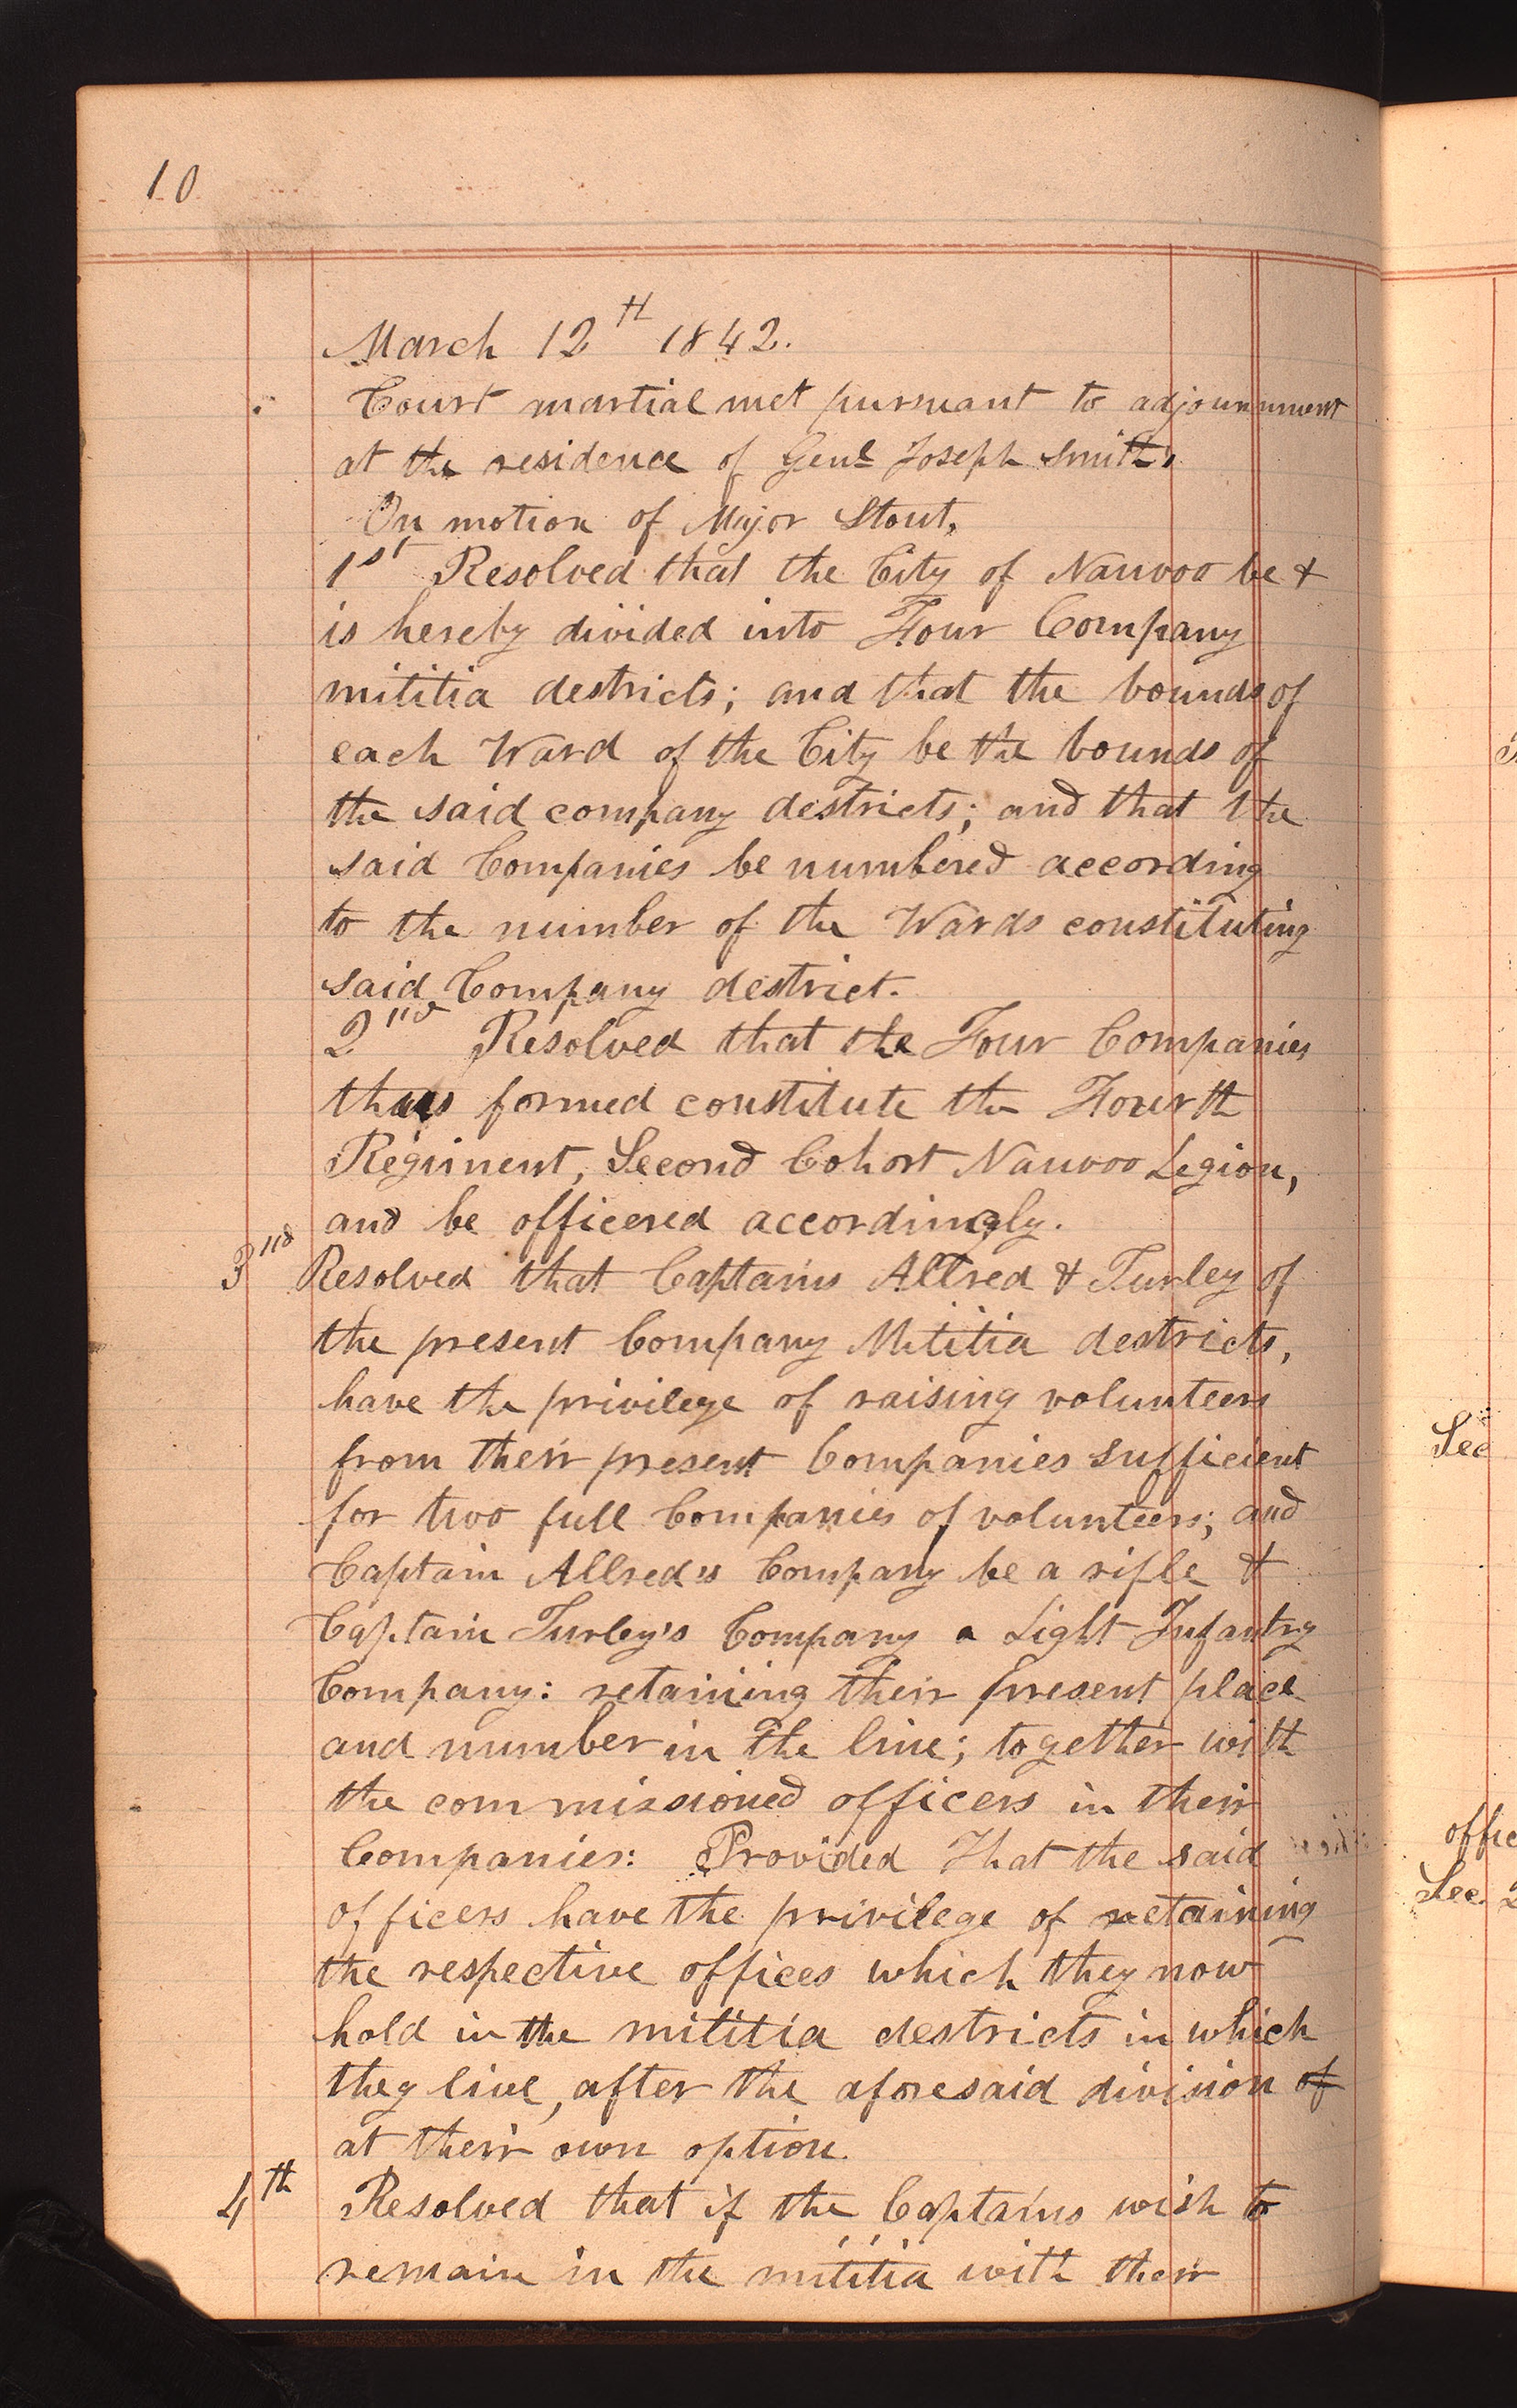 10
March 12th 1842.
Court martial met pursuant to adjournment
at the residence of Genl Joseph Smith,
On motion of Major Stout,
1st Resolved that the City of Nauvoo be &
is hereby divided into Four Company
mititia destricts; and that the bounds of
each Ward of the City be the bounds of
the said company destricts; and that the
said Companies be numbered according
to the number of the Wards constituting
said Company destrict.
2nd Resolved that the Four Companies
thus formed constitute the Fourth
Regiment, Second Cohort Nauvoo Legion,
and be officered accordingly.
3rd Resolved that Captains Allred & Turley of
the present Company Mititia destricts,
have the privilege of raising volunteers
from their present Companies sufficient
for two full Companies of volunteers; and
Captain Allred's Company be a rifle &
Captain Turley's Company a Light Infantry
Company: retaining their present place
and number in the line; together with
the commissioned officers in their
Companies: Provided That the said
officers have the privilege of retaining
the respective offices which they now
hold in the mititia destricts in which
they live, after the aforesaid division of
at their own option.
4th Resolved that if the Captains wish to
remain in the mititia with their
See
offic
Sec. 2